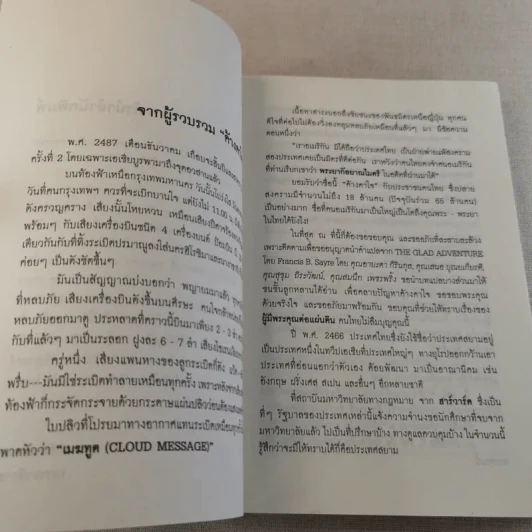 จากผู้รวบรวม "ค้าง
พ.ศ. 2487 เดือนธันวาคม เกือบจะสิ้นปี
ครั้งที่ 2 โดยเฉพาะเอเชียบูรพามาถึงจุดอวสานแล้ว
บนท้องฟ้าเหนือกรุงเทพมหานคร วันนั้นโปร่งใส
วันที่คนกรุงเทพฯ ควรที่จะเบิกบานใจ แต่ยังไม่ 11.00 น.
ดังครวญคราง เสียงนั้นโหยหวน เหมือนเสียงปีศาจ
พร้อมๆ กับเสียงเครื่องบินชนิด 4 เครื่องยนต์
เดียวกันกับที่ทิ้งระเบิดปรมาณูลงใส่นครฮิโรชิมา
ค่อยๆ เป็นดังชัดขึ้นๆ
มันเป็นสัญญาณบ่งบอกว่า พญายมมาแล้ว
ที่หลบภัย เสียงเครื่องบินดังขึ้นบนศีรษะ
หลบภัยออกมาดู ประหลาดที่คราวนี้บินมาเพียง 2 - 3 ลำ
กับที่แล้วๆ มาเป็นระลอก ฝูงละ 6 - 7 ลำ
ครู่หนึ่ง เสียงแพนหางของลูกระเบิดก็ดัง
พรึ่บ---มันมิใช่ระเบิดทำลายเหมือนทุกครั้ง
ท้องฟ้าก็กระจัดกระจายด้วยกระดาษแผ่นปลิวว่อน
ใบปลิวที่โปรยมาทางอากาศแทนระเบิดเหมือนทุกครั้ง
พาดหัวว่า "เมฆทูต (CLOUD MESSAGE)"
เนื้อหาสาระบอกถึงชัยชนะของพันธมิตรเหนือญี่ปุ่น ทุกคน
ดีใจที่ต่อไปไม่ต้องวิ่งลงหลุมหลบภัยเหมือนที่แล้วๆ มา มีข้อความ
ตอนหนึ่งว่า
"เราอเมริกัน มิได้ถือว่าประเทศไทย เป็นฝ่ายพ่ายแพ้สงคราม
สองประเทศเคยเป็นมิตรที่ดีต่อกัน เราหวังว่าคนไทยคงจำคนอเมริกัน
ที่ท่านเรียกว่า พระยากัลยาณไมตรี ในอดีตที่ผ่านมาได้"
ยอมรับว่าชื่อนี้ "ค้างคาใจ" กับประชาชนคนไทย ซึ่งปลาย
สงครามมีจำนวนไม่ถึง 18 ล้านคน (ปัจจุบันร่วม 65 ล้านคน)
เป็นอย่างมาก ชื่อที่คนอเมริกันมาเป็นใหญ่เป็นโตถึงคุณพระ - พระยา
ในไทยได้ยังไง!
ในที่สุด ณ ที่นี้ก็ต้องขอขอบคุณ และขออภัยที่ละลาบละล้วง
เพราะติดตามเพื่อขออนุญาตนำคำแปลจาก THE GLAD ADVENTURE
โดย Francis B. Sayre คือ
คุณสุขุม ถิระวัฒน์, คุณสมนึก เพชรพริ้ง ขอนำบทแปลบางส่วนมาให้
ชนชั้นลูกหลานได้อ่าน เพื่อคลายปัญหาค้างคาใจ ขอขอบพระคุณ
ด้วยจริงใจ และขออภัยมาพร้อมกัน ขอบคุณที่ช่วยให้ทราบเรื่องของ
ผู้มีพระคุณต่อแผ่นดิน คนไทยไม่ลืมบุญคุณนี้
ปี พ.ศ. 2466 ประเทศไทยซึ่งยังใช้ชื่อว่าประเทศสยามอยู่
เป็นประเทศหนึ่งในทวีปเอเชียที่ประเทศใหญ่ๆ ทางยุโรปออกกว้านเอา
ประเทศที่อ่อนแอกว่าตัวเอง ด้อยพัฒนา มาเป็นอาณานิคม เช่น
อังกฤษ ฝรั่งเศส สเปน และอื่นๆ อีกหลายชาติ
ที่สถาบันมหาวิทยาลัยทางกฎหมาย จาก ฮาร์วาร์ด ซึ่งเป็น
ที่ๆ รัฐบาลของประเทศเหล่านี้แจ้งความจำนงขอนักศึกษาที่จบจาก
มหาวิทยาลัยแล้ว ไปเป็นที่ปรึกษาบ้าง ทางดูแลควบคุมบ้าง ในจำนวนนี้
รู้สึกว่าจะมีให้ทราบได้ก็คือประเทศสยาม